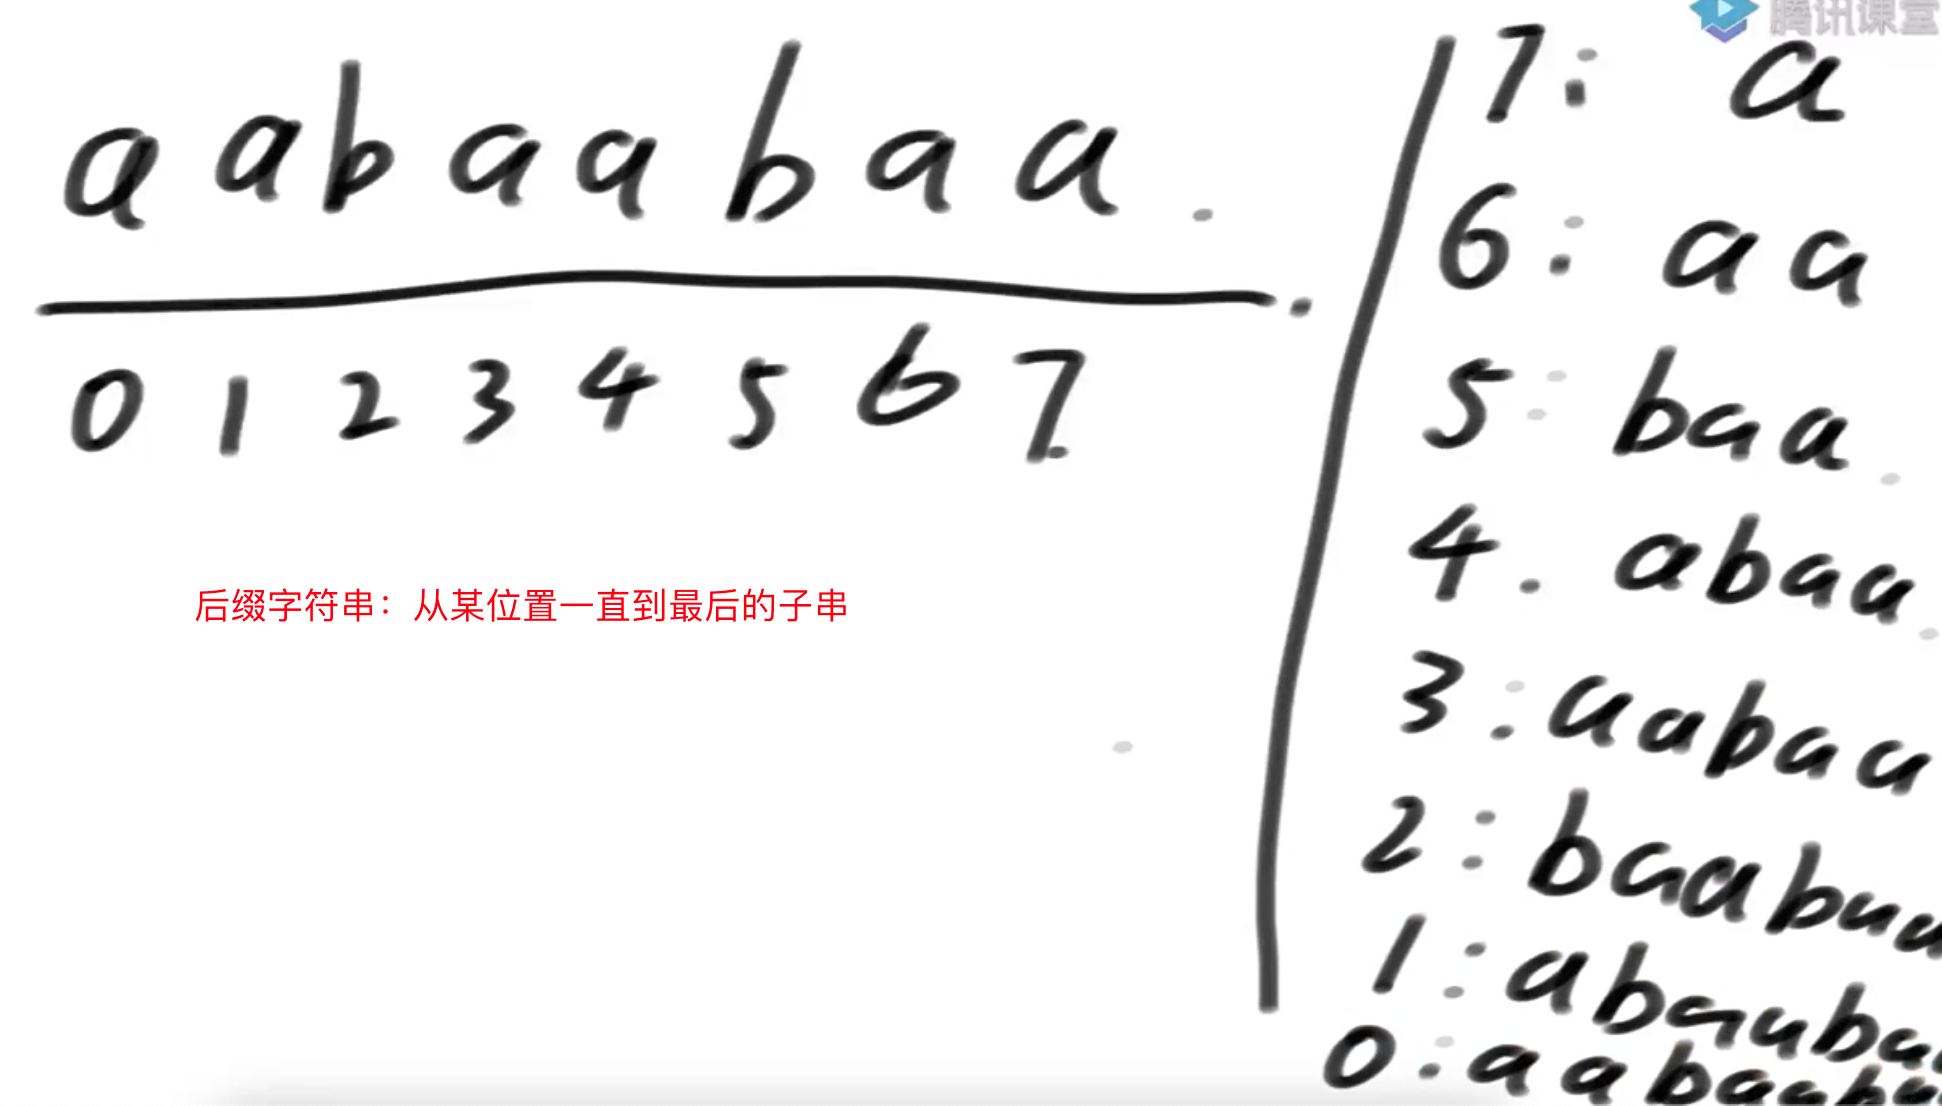 a a b a a b a a
0 1 2 3 4 5 6 7
后缀字符串：从某位置一直到最后的子串
腾讯课堂
7: a
6: aa
5: baa
4. abaa
3: aabaa
2: baabaa
1: abaaba
0: aabaab